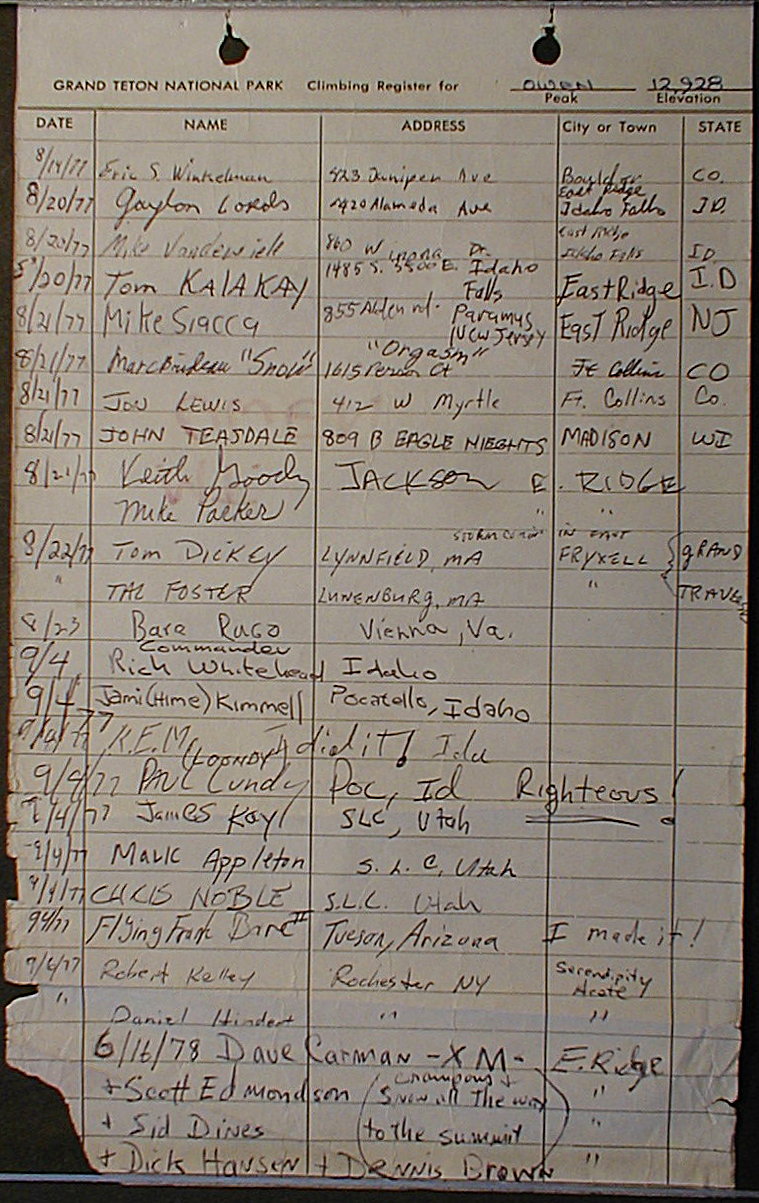 GRAND TETON NATIONAL PARK Climbing Register for OWEN 12,928
Peak Elevation
DATE NAME ADDRESS City or Town STATE
8/19/77 Eric S. Winkelman 423 Juniper Ave Boulder CO.
East Ridge
8/20/77 Gaylon Lords 1420 Alameda Ave Idaho Falls ID.
East Ridge
8/20/77 Mike 860 W Dr. Idaho Falls ID
8/20/77 Tom KALAKAY 1485 S. 3500 E. Idaho Falls East Ridge I.D
8/21/77 Mike Siacca 855 Alden rd. Paramus New Jersey East Ridge NJ
8/21/77 Marc "Snow" "Orgasm" 1615 Ct Ft Collins CO
8/21/77 JON LEWIS 412 W Myrtle Ft. Collins Co.
8/21/77 JOHN TEASDALE 809 B EAGLE HEIGHTS MADISON WI
8/21/77 Keith Moody JACKSON E. RIDGE
Mike Parker " "
8/22/77 Tom DICKEY LYNNFIELD, MA FRYXELL { GRAND
" TAL FOSTER LUNENBURG, MA " TRAVERSE
8/23 Bara Rugo Vienna, Va.
Commander
9/4 Rich Whitehead Idaho
9/4 Jami (Hime) Kimmell Pocatello, Idaho
9/4/77 K.E.M. I did it! Ida
(LOONDY)
9/4/77 PAUL Lundy Poc, Id Righteous!
9/4/77 James Kay SLC, Utah
9/4/77 Mark Appleton S. L. C, Utah
9/4/77 CHRIS NOBLE S.L.C. Utah
9/4/77 Flying Frank Bare II Tucson, Arizona I made it!
9/6/77 Robert Kelley Rochester NY Serendipity Arete
" Daniel Hindert " "
6/16/78 Dave Carman -XM- E. Ridge
+ Scott Edmondson (crampons + snow all the way "
+ Sid Dines to the summit) "
+ Dick Hansen + Dennis Brown "